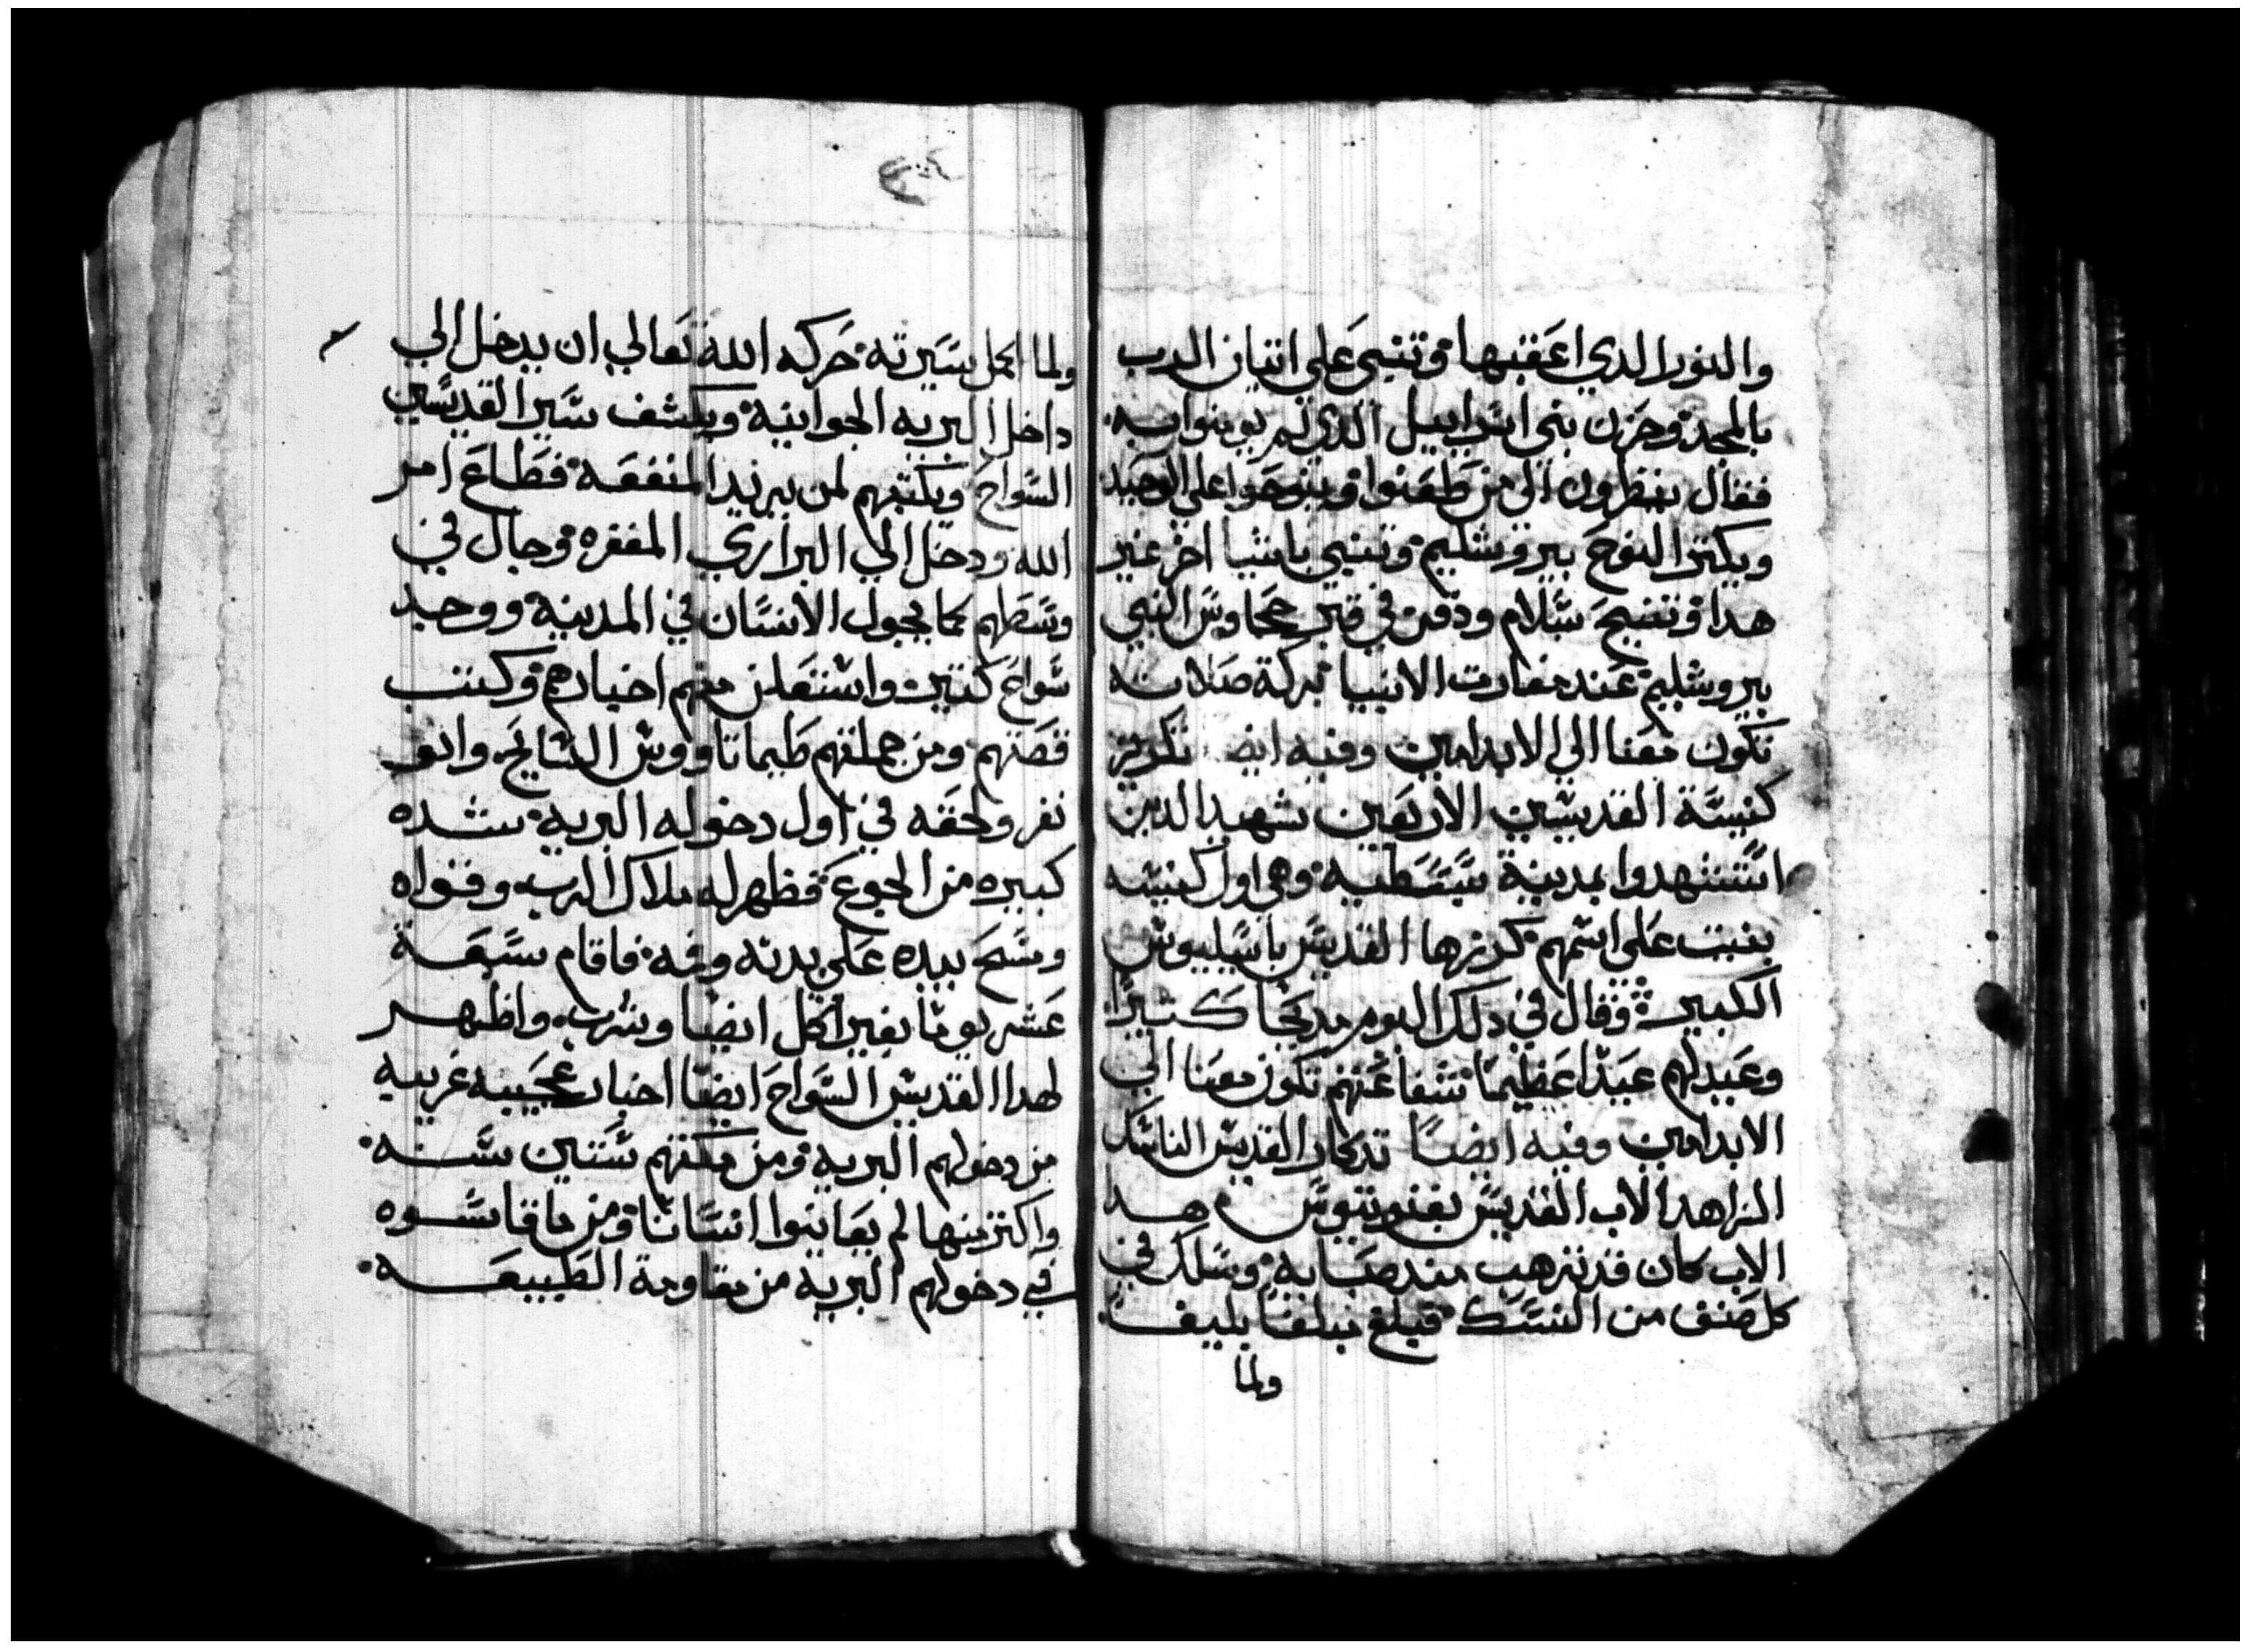 والنور الدي اعقبها وتنبى على اتيان الرب
بالمجد وحزن بني اسراييل الدي لم يومنوا به
فقال ينظرون الى من طعنوا وينوحوا على الوحيد
ويكتر النوح بيروشليم وتنبى باشيا اخر غير
هدا وتنيح بسلام ودفن في قبر حجاوس النبي
بيروشليم عند مغارت الانبيا بركة صلاته
تكون معنا الي الابد امين وفيه ايض تكريز
كنيسة القديسين الاربعين شهيد الدين
استشهدوا بمدينة سبسطيه وهي اول كنيسه
بنيت على اسمهم كرزها القديس باسيليوس
الكبير وقال في دلك اليوم مديحا كتيرا
وعيد لهم عيدا عظيما شفاعتهم تكون معنا الى
الابد امين وفيه ايضا تدكار القديس الناسك
الزاهد الاب القديس بفنوتيوس هدا
الاب كان قد ترهب مند صبايه وسلك في
كل صنف من النسك فبلغ مبلغا بليغا
ولما
ولما اكمل سيرته حركه الله تعالي ان يدخل الي
داخل البريه الجوانية ويكشف سير القديسين
السواح ويكتبهم لمن يريد المنفعه فطاع امر
الله ودخل الي البراري المقفره وجال في
وسطهم كما يجول الانسان في المدينة ووجد
سواح كتيرين واستعلن منهم اخبارهم وكتب
قصتهم ومن جملتهم طيماتاووس السايح وابو
نفر ولحقه في اول دخوله البريه شده
كبيره من الجوع فظهر له ملاك الرب وقواه
ومسح بيده على بدنه وفمه فاقام سبعة
عشر يوما بغير اكل ايضا وشرب واظهر
لهدا القديس السواح ايضا اخبار عجيبه غريبه
من دخولهم البريه ومن مكتهم ستين سنه
واكتر منها لم يعاينوا انسانا ومن ما قاسوه
في دخولهم البريه من مقاومة الطبيعه